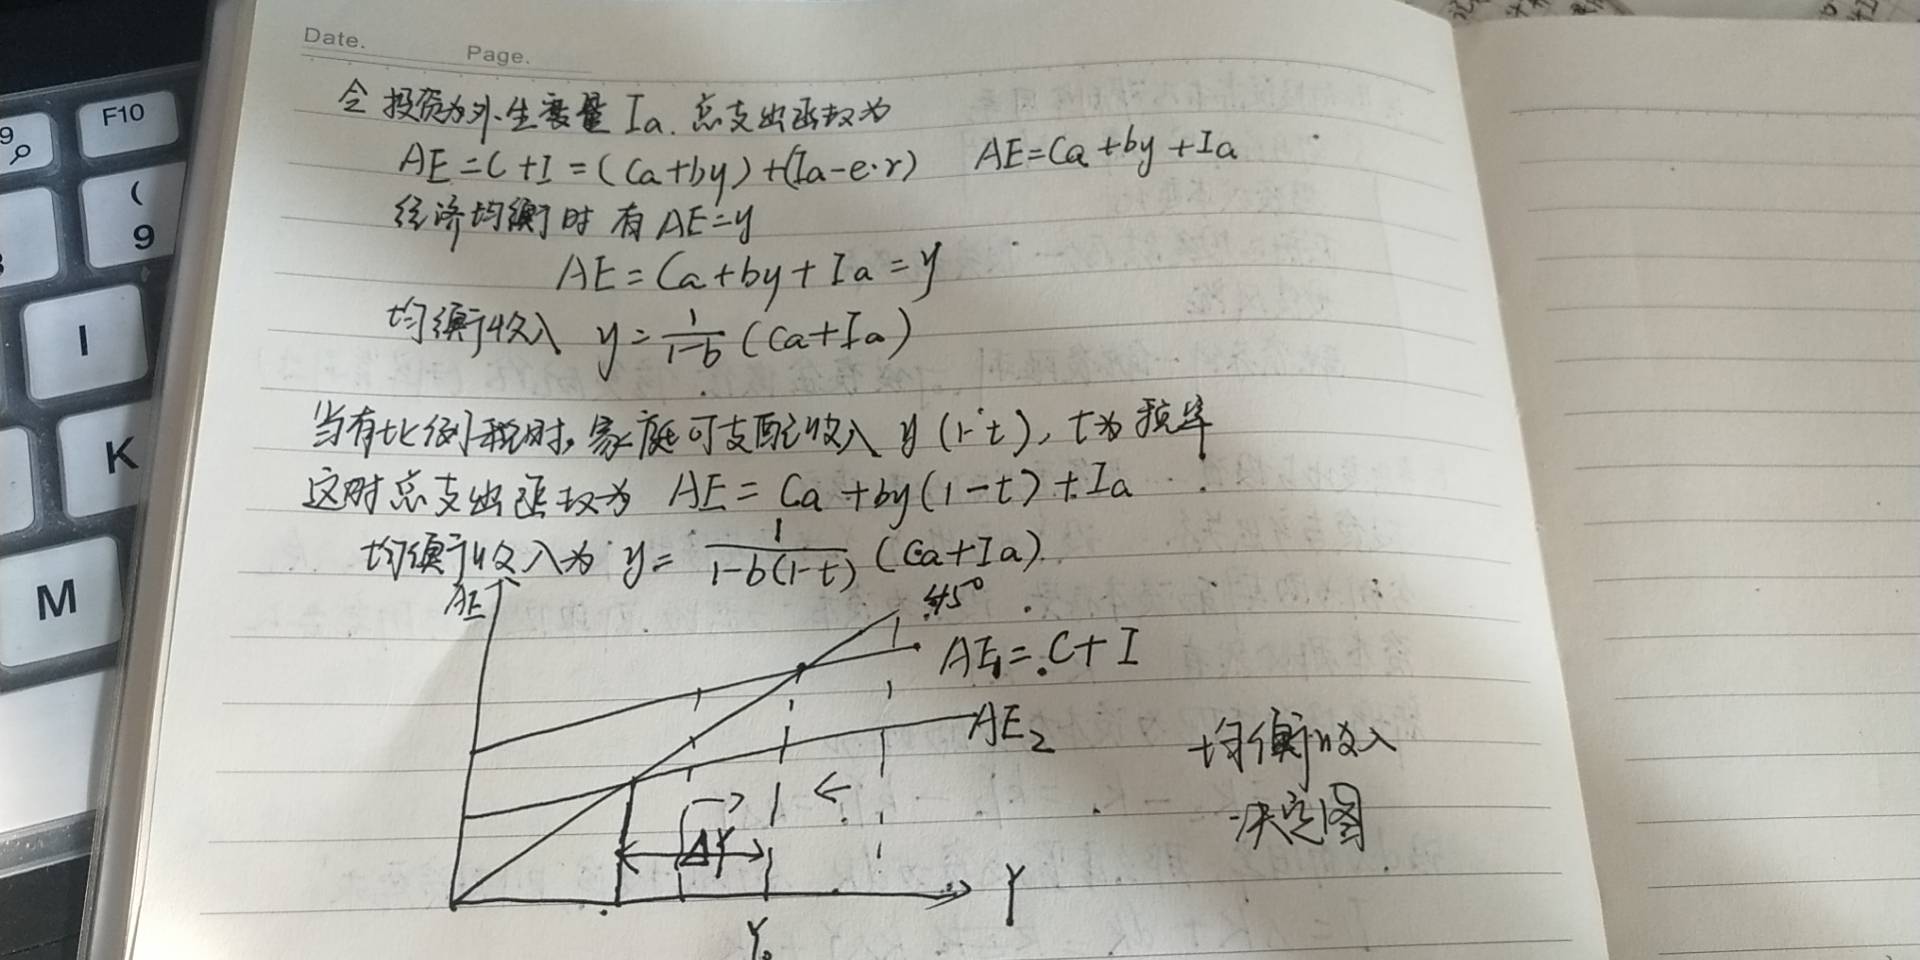 Date.
Page.
令投资为外生变量 Ia. 总支出函数为
AE=C+I=(Ca+by)+(Ia-e·r) AE=Ca+by+Ia
经济均衡时有 AE=y
AE=Ca+by+Ia=y
均衡收入 y=\frac{1}{1-b}(Ca+Ia)
当有比例税时,家庭可支配收入 y(1-t), t为税率
这时总支出函数为 AE=Ca+by(1-t)+Ia
均衡收入为 y=\frac{1}{1-b(1-t)}(Ca+Ia)
AE
45°
AE₁=C+I
AE₂
均衡收入
决定图
ΔY
Y
Y₀
F10
9
(
9
I
K
M